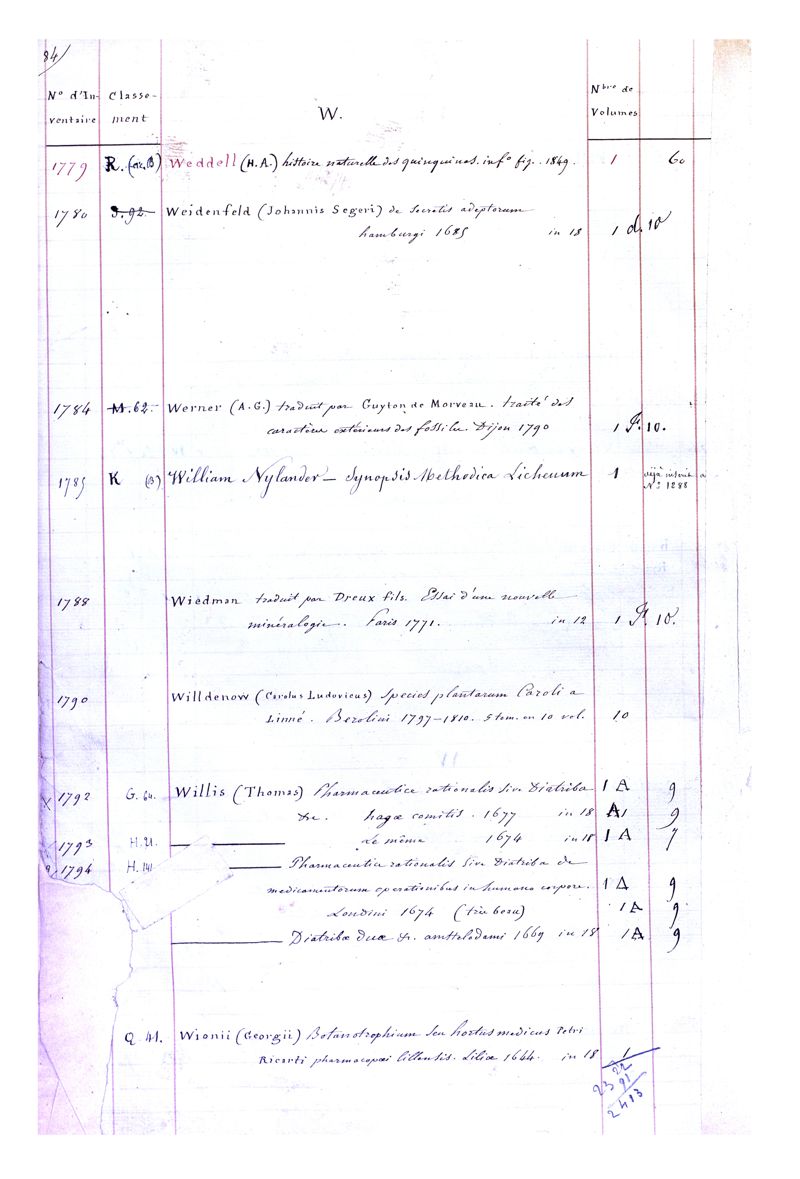 84
N° d'In- Classe- Nbre de
ventaire ment W. Volumes
1779 R. (B) Weddell (H.A.) histoire naturelle des quinquinas. in f° fig. 1849. 1 60
1780 J. 92. Weidenfeld (Johannis Segeri) de secretis adeptorum
hamburgi 1685 in 18 1 d. 10
1784 M. 62. Werner (A.G.) traduit par Guyton de Morveau. traité des
caractères extérieurs des fossiles. Dijon 1790 1 P. 10.
1785 K (B) William Nylander — Synopsis Methodica Lichenum 1 déjà inscrit a
N° 1288
1788 Wiedman traduit par Dreux fils. Essai d'une nouvelle
minéralogie. Paris 1771. in 12 1 P. 10.
1790 Willdenow (Carolus Ludovicus) Species plantarum Caroli a
Linné. Berolini 1797-1810. 5 tom. en 10 vol. 10
x 1792 G. 64. Willis (Thomas) Pharmaceutice rationalis sive Diatriba 1 A 9
&c. hagæ comitis. 1677 in 18 A1 9
1793 H. 21. — Le même 1674 in 18 1 A 7
1794 H. 141 — Pharmaceutice rationalis sive Diatriba de
medicamentorum operationibus in humano corpore. 1 A 9
Londini 1674 (très beau) 1 A 9
— Diatribæ duæ &c. amstelodami 1669 in 18 1 A 9
Q 41. Wionii (Georgii) Botanotrophium seu hortus medicus Petri
Ricarti pharmacopæi lillensis. Liliæ 1644. in 18 1
23 22
91
2413